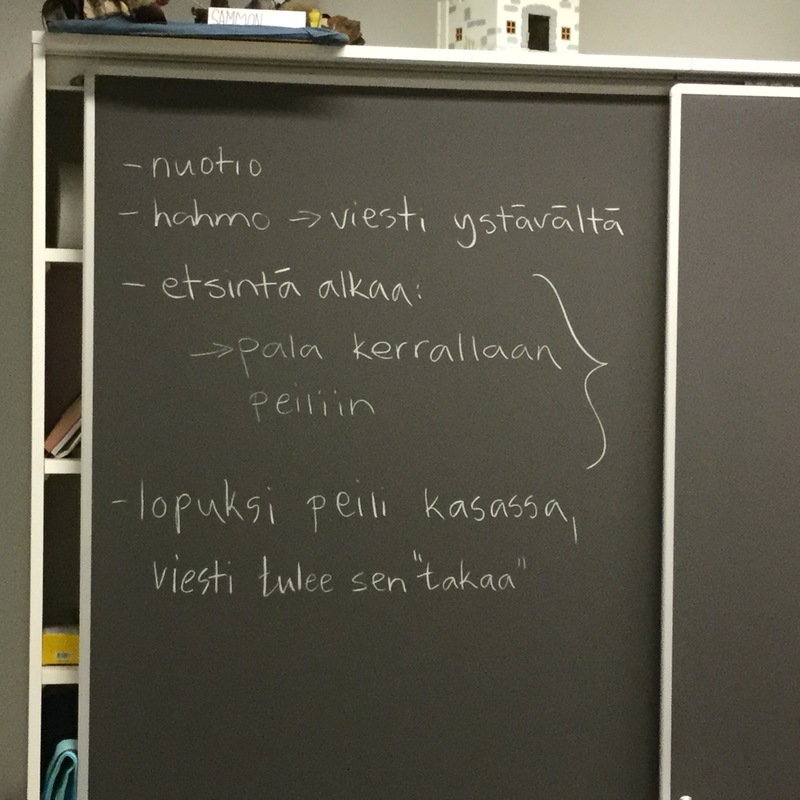 SAMMON
- nuotio
- hahmo → viesti ystävältä
- etsintä alkaa:
→ pala kerrallaan
peiliin
- lopuksi peili kasassa,
viesti tulee sen "takaa"